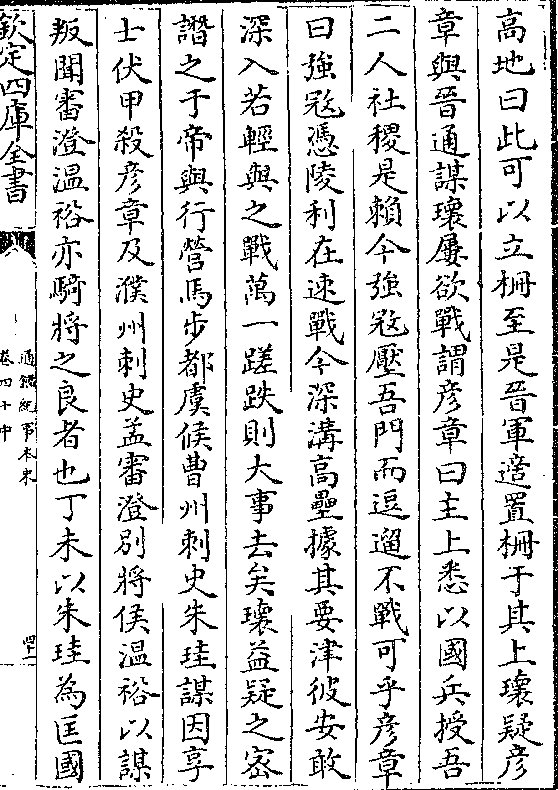 高地曰此可以立柵至是晉軍適置柵于其上瓌疑彦
章與晉通謀瓌屢欲戰謂彦章曰主上悉以國兵授吾
二人社稷是賴今強宼壓吾門而逗遛不戰可乎彦章
曰強宼憑陵利在速戰今深溝高壘據其要津彼安敢
深入若輕與之戰萬一蹉跌則大事去矣瓌益疑之宻
譖之于帝與行營馬步都虞候曹州刺史朱珪謀因享
士伏甲殺彦章及濮州刺史孟審澄别將侯温裕以謀
叛聞審澄温裕亦騎將之良者也丁未以朱珪為匡國
欽定四庫全書
通鑑紀事本末
卷四十中